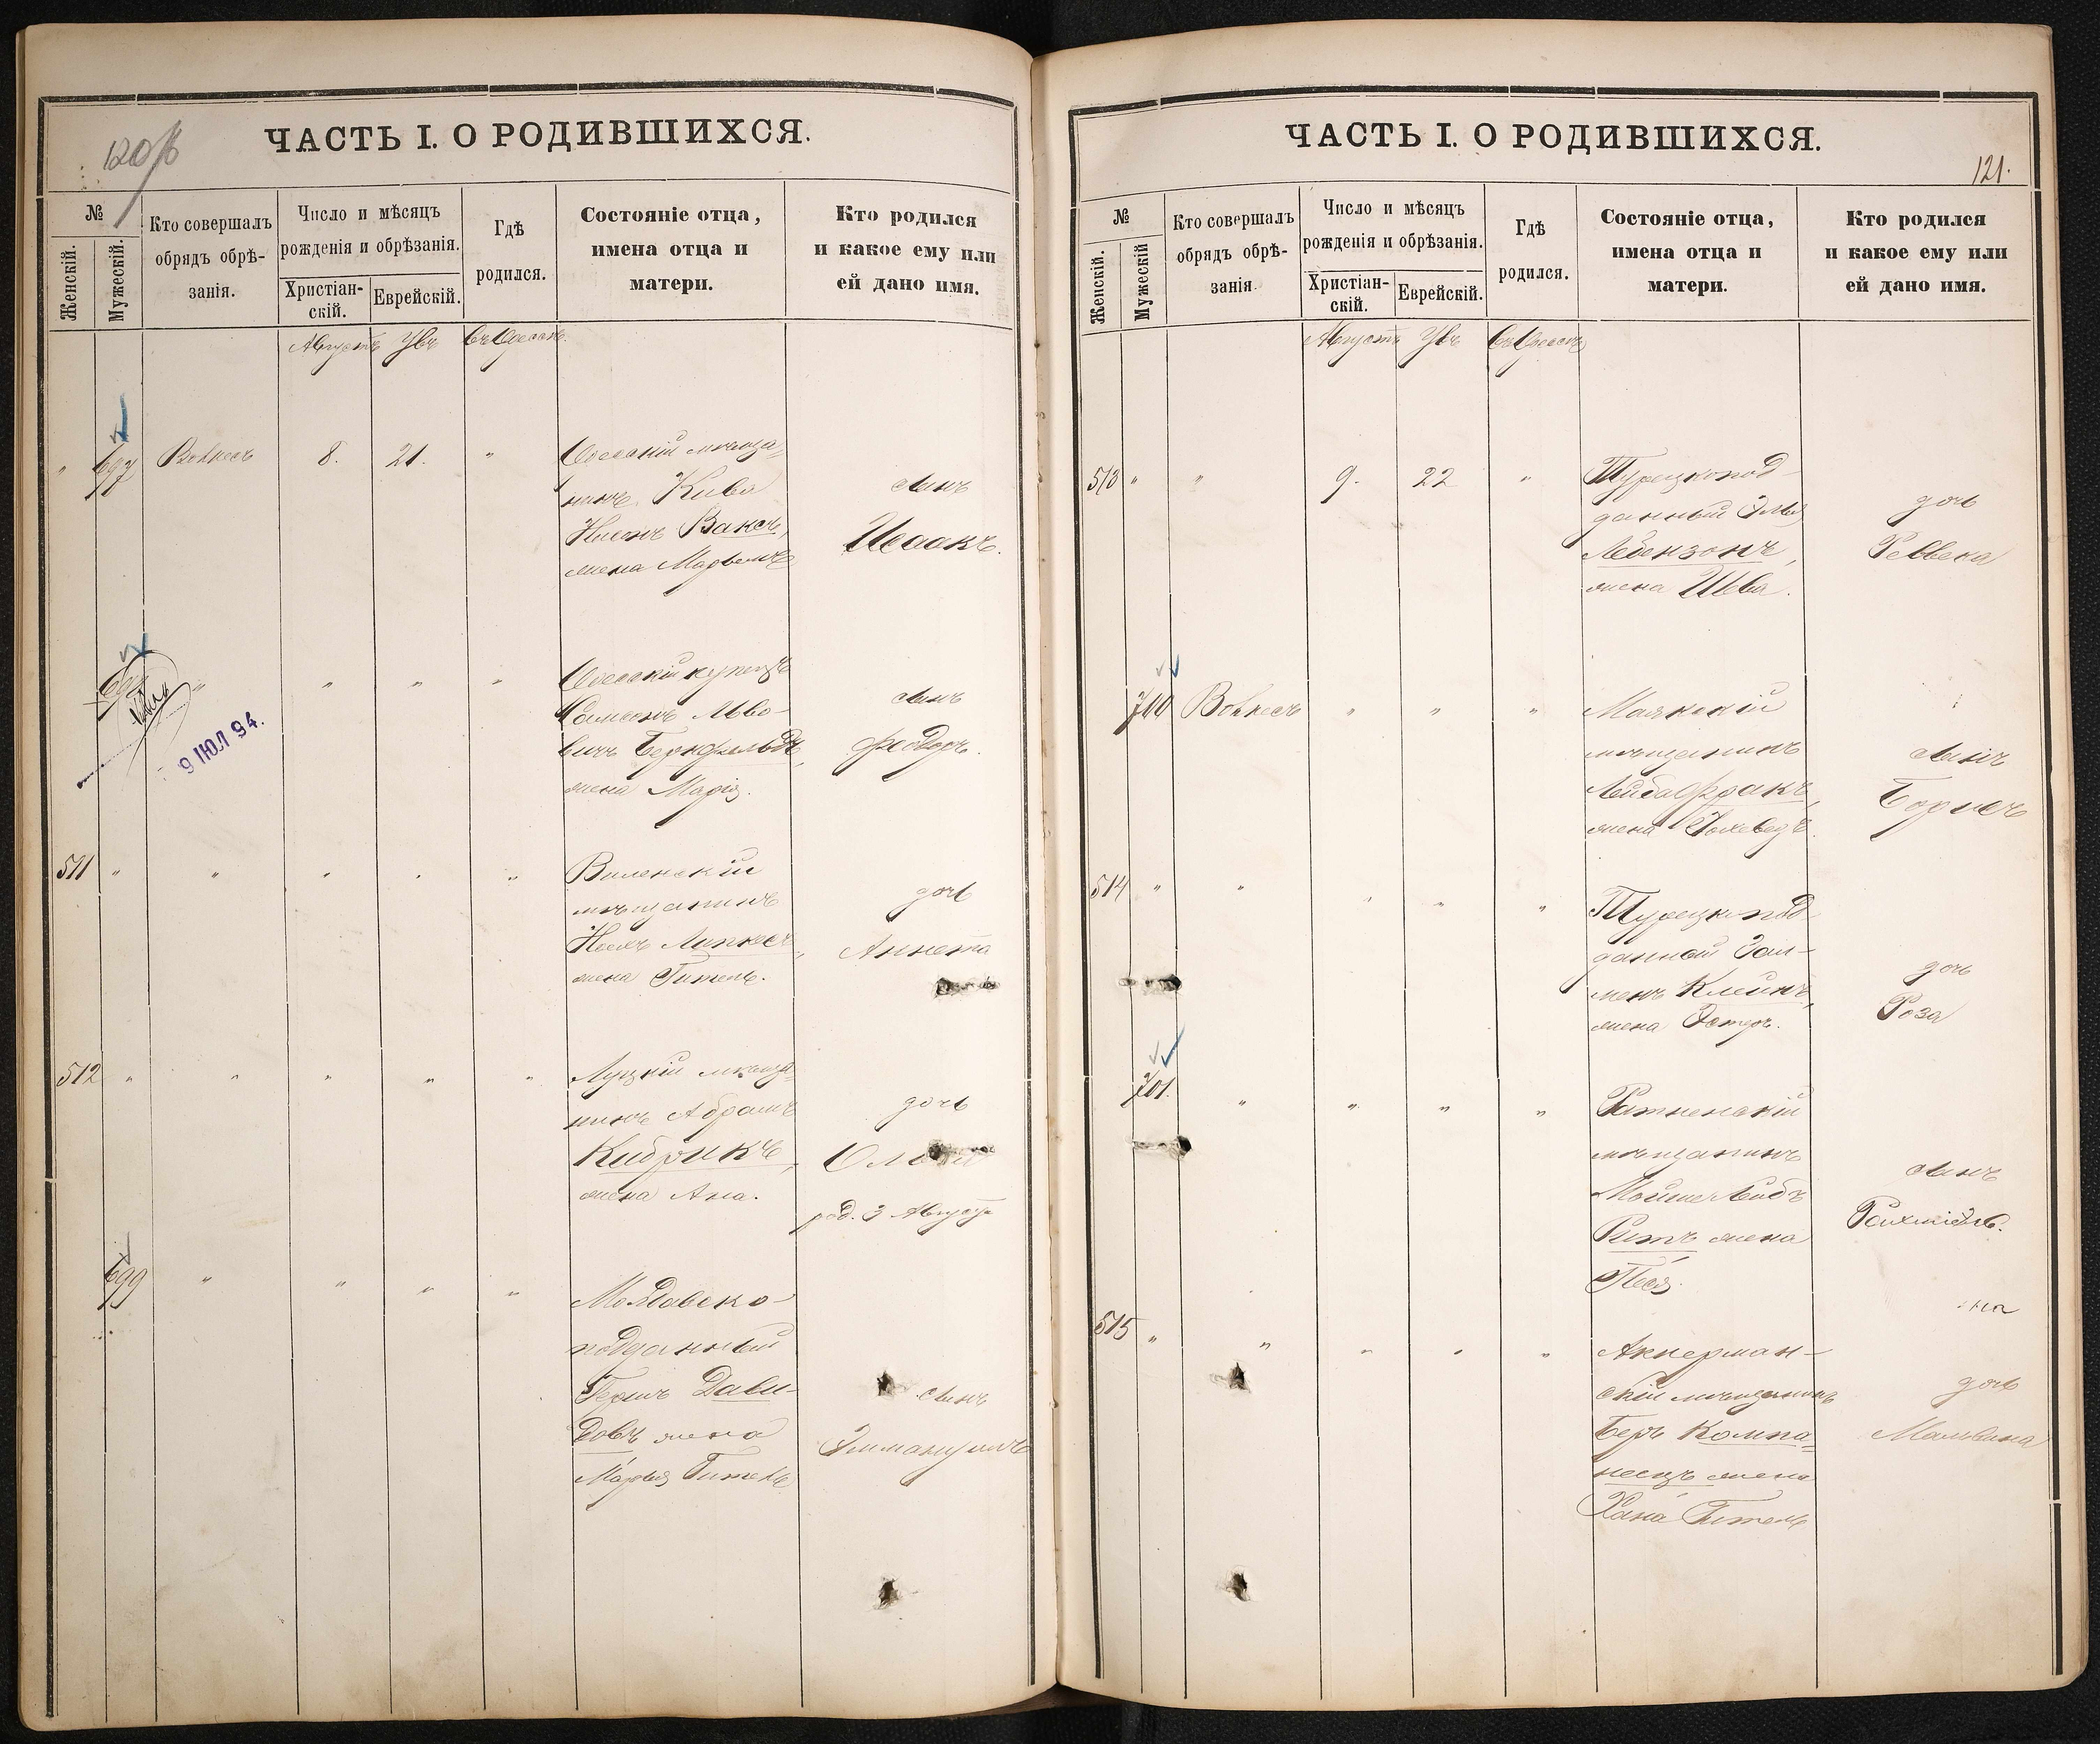 120
ЧАСТЬ I. О РОДИВШИХСЯ.
№
Женскій.
Мужескій.
Кто совершалъ
обрядъ обрѣ-
занія.
Число и мѣсяцъ
рожденія и обрѣзанія.
Христіан-
скій.
Еврейскій.
Гдѣ
родился.
Состояніе отца,
имена отца и
матери.
Кто родился
и какое ему или
ей дано имя.
Августъ Увъ Въ Одессѣ
" 697 8. 21. "
Одесскій мѣща-
нинъ Кива
Нисонъ Ваксъ,
жена
сынъ
Исаакъ.
" " " "
Одесскій купецъ
Самсонъ Льво-
вичъ
жена Марія.
сынъ
Феодоръ.
9 ІЮЛ 94.
511 " " " " "
Виленскій
мѣщанинъ
Липкесъ,
жена Гитель.
дочь
Аннета
512 " " " " "
Луцкій мѣща-
нинъ Абрамъ
Кибрикъ,
жена Ана.
дочь
род. 3 Августа
699 " " " "
Молдавско-
подданный
Гершъ Дави-
довъ жена
Марья Гитель
сынъ
Эммануилъ
ЧАСТЬ I. О РОДИВШИХСЯ.
121.
№
Женскій.
Мужескій
Кто совершалъ
обрядъ обрѣ-
занія.
Число и мѣсяцъ
рожденія и обрѣзанія.
Христіан-
скій.
Еврейскій.
Гдѣ
родился.
Состояніе отца,
имена отца и
матери.
Кто родился
и какое ему или
ей дано имя.
Августъ Увъ Въ Одессѣ
513 " " 9. 22 "
Турецкопод-
данный Элья
Лебензонъ,
жена Шева.
дочь
Ревека
700 " " "
Маякскій
мѣщанинъ
Лейба Фракъ,
жена
сынъ
Борисъ
514 " " " " "
Турецкопод-
данный Зал-
менъ Клейнъ,
жена Эстеръ.
дочь
Роза
701. " " " "
Ратненскій
мѣщанинъ
Мойше Лейбъ
жена
Песя.
сынъ
515 " " " " "
Аккерман-
скій мѣщанинъ
Беръ Компа-
неецъ жена
Хана Гитель
дочь
Мальвина